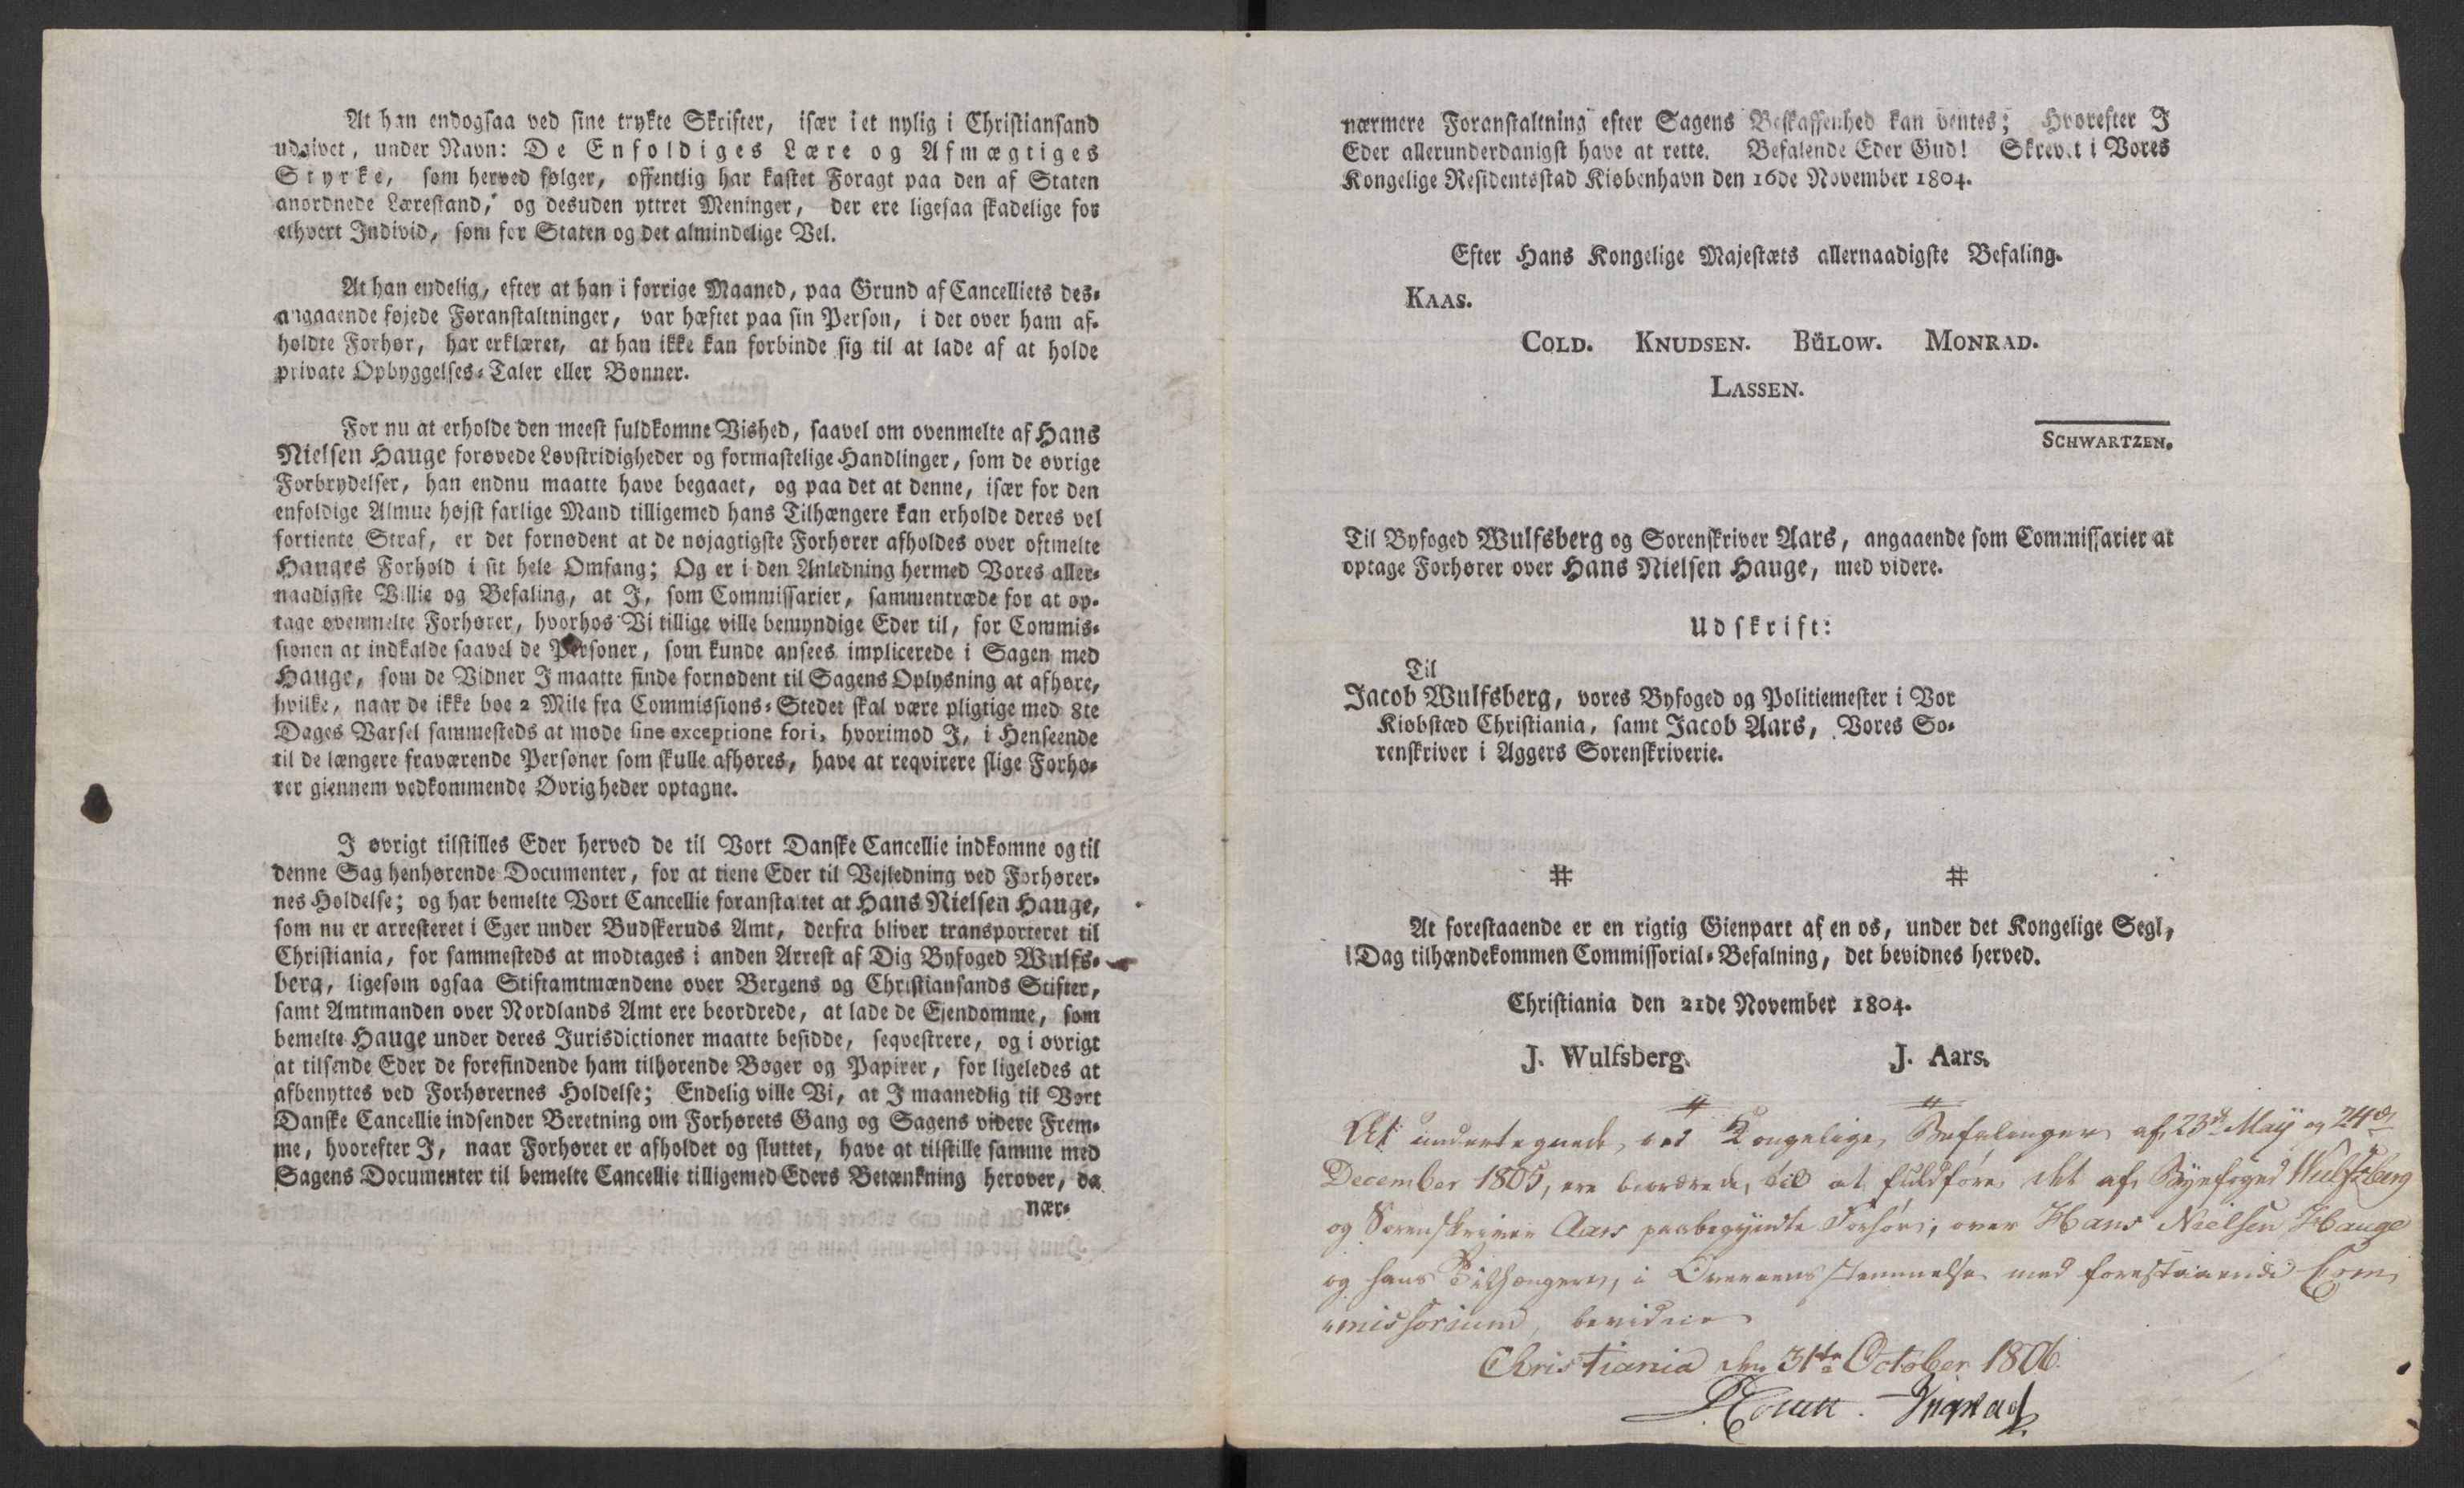 At han endogsaa ved sine trykte Skrifter, især i et nylig i Christiansand
udgivet, under Navn: De Enfoldiges Lære og Afmægtiges
Styrke, som herved følger, offentlig har kastet Foragt paa den af Staten
anordnede Lærestand, og desuden yttret Meninger, der ere ligesaa skadelige for
ethvert Individ, som for Staten og det almindelige Vel.
At han endelig, efter at han i forrige Maaned, paa Grund af Cancelliets des-
angaaende føjede Foranstaltninger, var hæftet paa sin Person, i det over ham af-
holdte Forhør, har erklæret, at han ikke kan forbinde sig til at lade af at holde
private Opbyggelses-Taler eller Bønner.
For nu at erholde den meest fuldkomne Vished, saavel om ovenmelte af Hans
Nielsen Hauge forøvede Lovstridigheder og formastelige Handlinger, som de øvrige
Forbrydelser, han endnu maatte have begaaet, og paa det at denne, især for den
enfoldige Almue højst farlige Mand tilligemed hans Tilhængere kan erholde deres vel
fortiente Straf, er det fornødent at de nøjagtigste Forhører afholdes over oftmelte
Hauges Forhold i sit hele Omfang; Og er i den Anledning hermed Vores aller-
naadigste Villie og Befaling, at I, som Commissarier, sammentræde for at op-
tage ovenmelte Forhører, hvorhos Vi tillige ville bemyndige Eder til, for Commis-
sionen at indkalde saavel de Personer, som kunde ansees implicerede i Sagen med
Hauge, som de Vidner I maatte finde fornødent til Sagens Oplysning at afhøre,
hvilke, naar de ikke boe 2 Mile fra Commissions-Stedet skal være pligtige med 8te
Dages Varsel sammesteds at møde sine exceptione fori, hvorimod I, i Henseende
til de længere fraværende Personer som skulle afhøres, have at reqvirere slige Forhø-
rer giennem vedkommende Øvrigheder optagne.
I øvrigt tilstilles Eder herved de til Vort Danske Cancellie indkomne og til
denne Sag henhørende Documenter, for at tiene Eder til Vejledning ved Forhører-
nes Holdelse; og har bemelte Vort Cancellie foranstaltet at Hans Nielsen Hauge,
som nu er arresteret i Eger under Budskeruds Amt, derfra bliver transporteret til
Christiania, for sammesteds at modtages i anden Arrest af Dig Byfoged Wulfs-
berg, ligesom ogsaa Stiftamtmændene over Bergens og Christiansands Stifter,
samt Amtmanden over Nordlands Amt ere beordrede, at lade de Ejendomme, som
bemelte Hauge under deres Jurisdictioner maatte besidde, seqvestrere, og i øvrigt
at tilsende Eder de forefindende ham tilhørende Bøger og Papirer, for ligeledes at
afbenyttes ved Forhørernes Holdelse; Endelig ville Vi, at I maanedlig til Vort
Danske Cancellie indsender Beretning om Forhørets Gang og Sagens videre Frem-
me, hvorefter I, naar Forhøret er afholdet og sluttet, have at tilstille samme med
Sagens Documenter til bemelte Cancellie tilligemed Eders Betænkning herover, da
nær-
nærmere Foranstaltning efter Sagens Beskaffenhed kan ventes; Hvorefter I
Eder allerunderdanigst have at rette. Befalende Eder Gud! Skrevet i Vores
Kongelige Residentsstad Kiøbenhavn den 16de November 1804.
Efter Hans Kongelige Majestæts allernaadigste Befaling.
KAAS.
COLD. KNUDSEN. BÜLOW. MONRAD.
LASSEN.
SCHWARTZEN.
Til Byfoged Wulfsberg og Sorenskriver Aars, angaaende som Commissarier at
optage Forhører over Hans Nielsen Hauge, med videre.
Udskrift:
Til
Jacob Wulfsberg, vores Byfoged og Politiemester i Vor
Kiøbstæd Christiania, samt Jacob Aars, Vores So-
renskriver i Aggers Sorenskriverie.
# #
At forestaaende er en rigtig Gienpart af en os, under det Kongelige Segl,
i Dag tilhændekommen Commissorial-Befalning, det bevidnes herved.
Christiania den 21de November 1804.
J. Wulfsberg. J. Aars.
# #
At undertegnede, ved 2 Kongelige Befalinger af 23de Maÿ og 24de
December 1805, ere beordrede, til at fuldføre det af Byefoged Wulfsberg
og Sorenskriver Aars paabegyndte Forhør, over Hans Nielsen Hauge
og hans Tilhængere, i Overeensstemmelse med forestaaende Com
missorium, bevidner
Christiania den 31te October 1806.